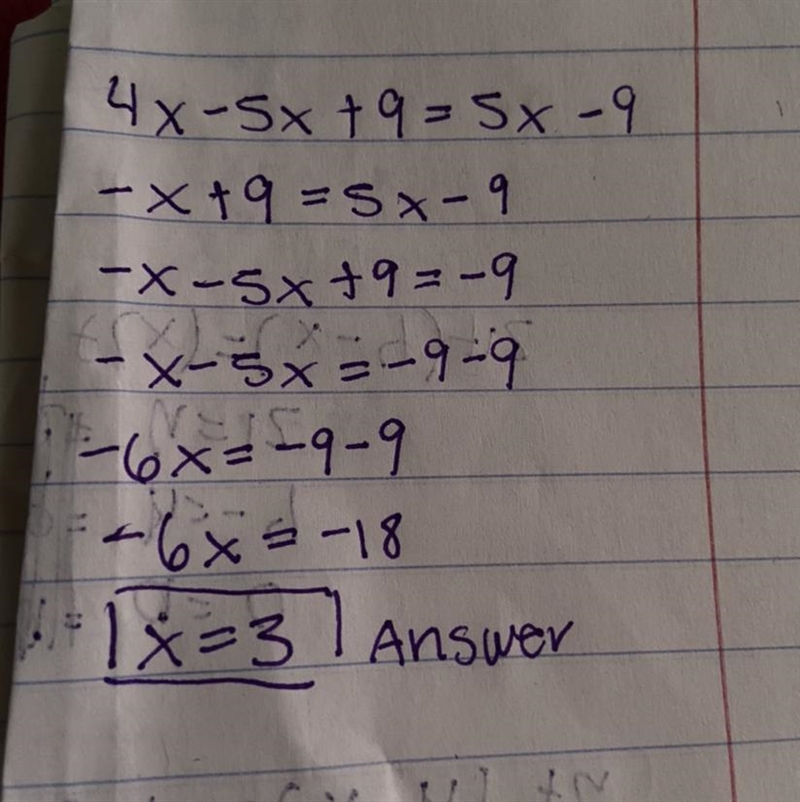 4x-5x+9=5x-9
-x+9=5x-9
-x-5x+9=-9
-x-5x=-9-9
-6x=-9-9
-6x=-18
x=3 Answer